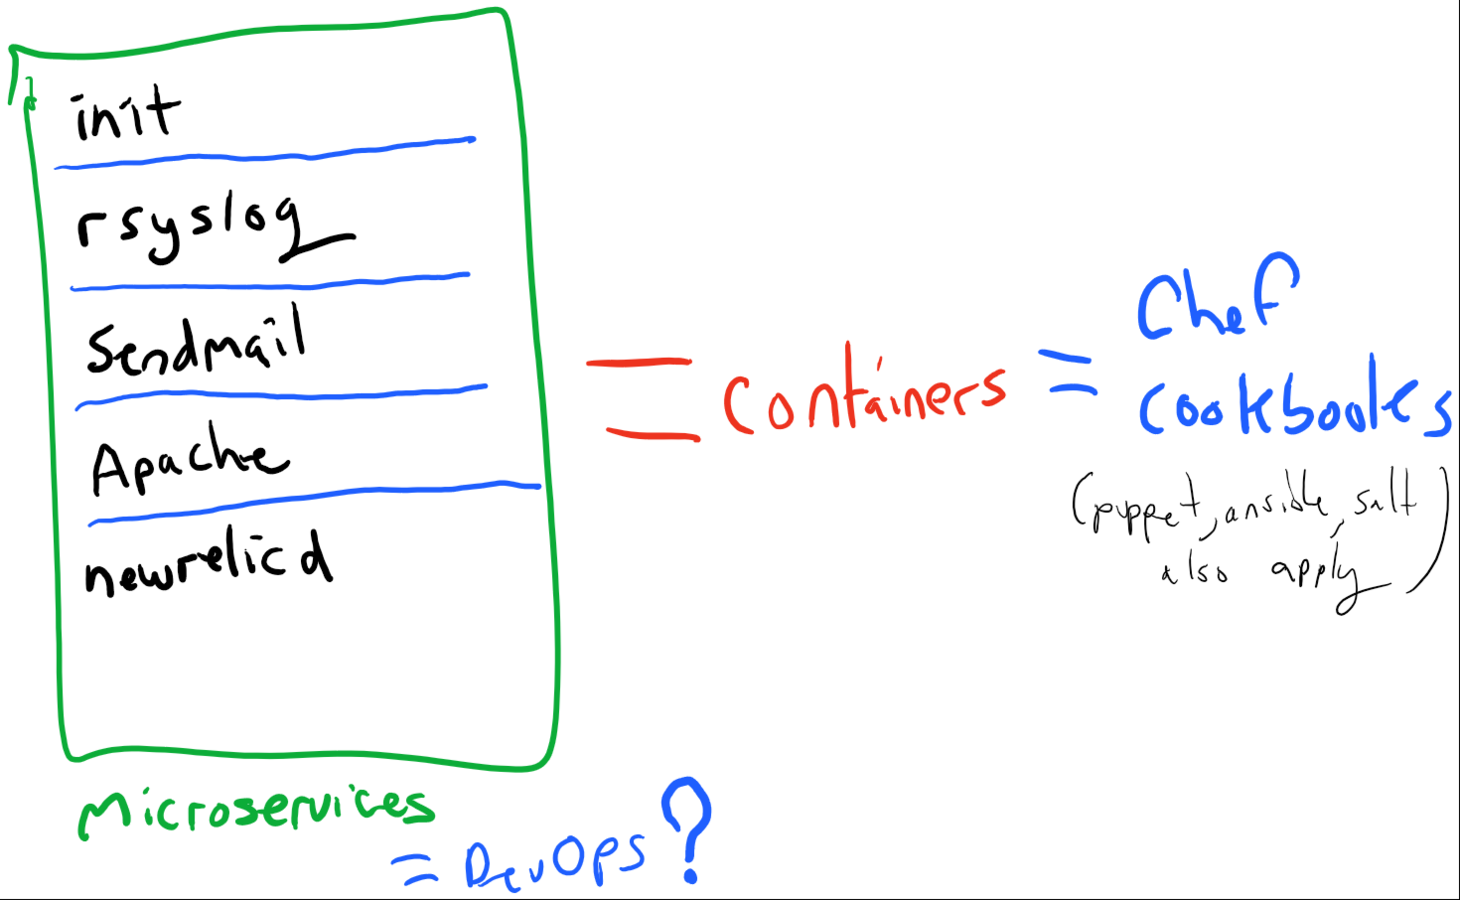 init
rsyslog
Sendmail
Apache
newrelicd
Microservices
= DevOps?
= Containers =
Chef
Cookbooks
(puppet, ansible, salt
also apply)